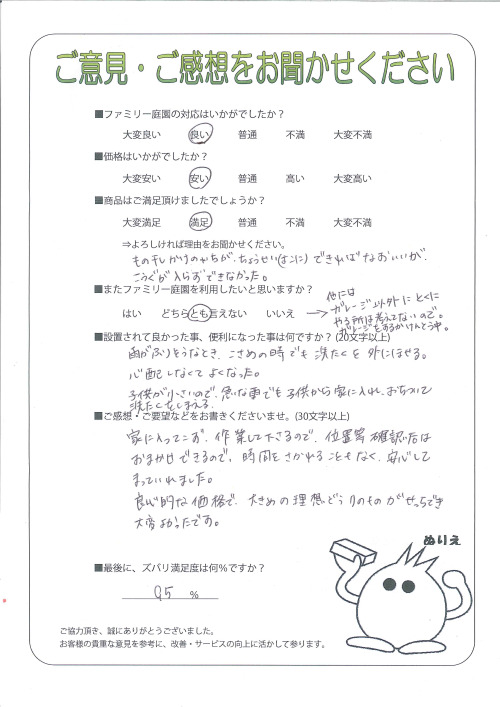 ご意見・ご感想をお聞かせください
■ファミリー庭園の対応はいかがでしたか？
大変良い 良い 普通 不満 大変不満
■価格はいかがでしたか？
大変安い 安い 普通 高い 大変高い
■商品はご満足頂けましたでしょうか？
大変満足 満足 普通 不満 大変不満
⇒よろしければ理由をお聞かせください。
もの干しかけのかちが、ちょうせい できればなおいいが、
こうぐが入らずできなかった。
■またファミリー庭園を利用したいと思いますか？
はい どちらとも言えない いいえ
他には
ガレージ以外にとくに
やる所は考えてないので。
ガレージをするかけんとう中。
■設置されて良かった事、便利になった事は何ですか？(20文字以上)
雨がふりそうなとき、こさめの時でも洗たくを外にほせる。
心配しなくてよくなった。
子供が小さいので、急な雨でも子供から家に入れ、おちついて
洗たくをしまえる。
■ご感想・ご要望などをお書きくださいませ。(30文字以上)
家に入ってこず、作業して下さるので、位置等確認以后は
おまかせできるので、時間をさかれることもなく、安心して
まっていれました。
良心的な価格で、大きめの理想どうりのものがせっちでき
大変よかったです。
■最後に、ズバリ満足度は何％ですか？
95 %
ぬりえ
ご協力頂き、誠にありがとうございました。
お客様の貴重な意見を参考に、改善・サービスの向上に活かして参ります。